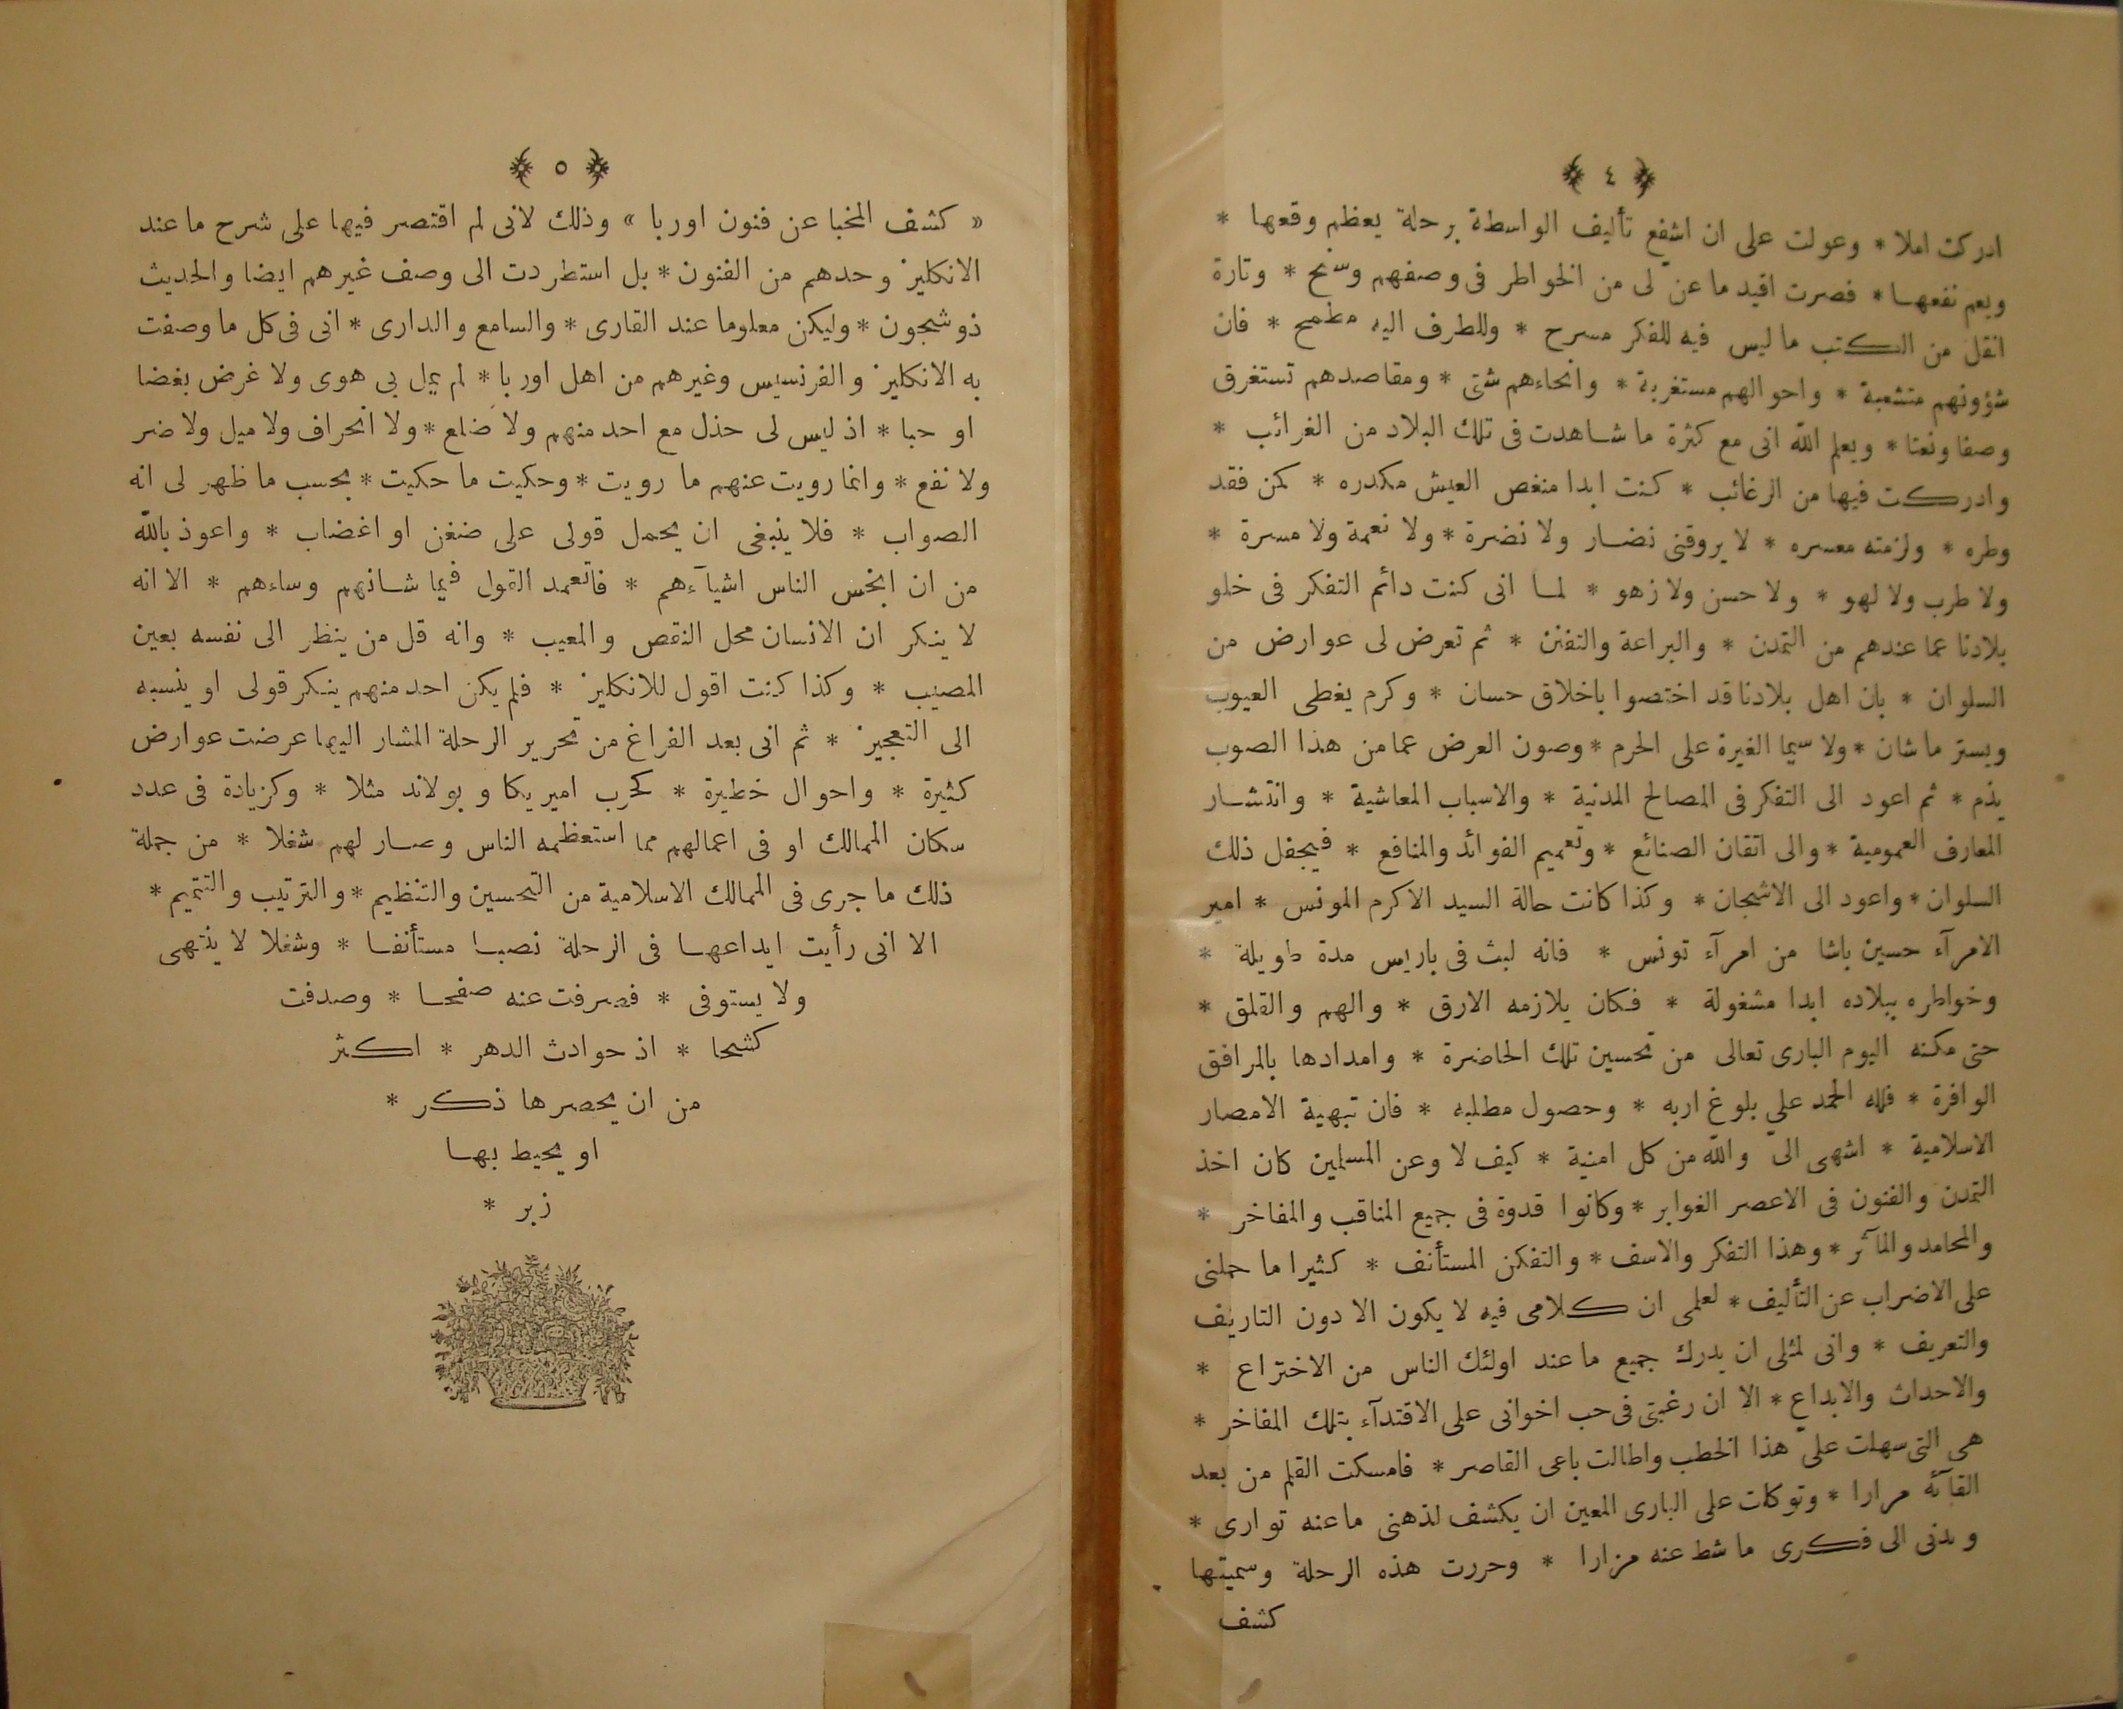 ﴿ ٤ ﴾
ادركت املا * وعولت على ان اشفع تأليف الواسطة برحلة يعظم وقعها *
ويعم نفعها * فصرت اقيد ما عنّ لى من الخواطر فى وصفهم وسنح * وتارة
انقل من الكتب ما ليس فيه للفكر مسرح * وللطرف اليه مطمح * فان
شؤونهم متشعبة * واحوالهم مستغربة * وانحاءهم شتى * ومقاصدهم تستغرق
وصفا ونعتا * ويعلم الله انى مع كثرة ما شاهدت فى تلك البلاد من الغرائب *
وادركت فيها من الرغائب * كنت ابدا منغص العيش مكدره * كمن فقد
وطره * ولزمته معسره * لا يروقنى نضار ولا نضرة * ولا نعمة ولا مسرة *
ولا طرب ولا لهو * ولا حسن ولا زهو * لما انى كنت دائم التفكر فى خلو
بلادنا عما عندهم من التمدن * والبراعة والتفنن * ثم تعرض لى عوارض من
السلوان * بان اهل بلادنا قد اختصوا باخلاق حسان * وكرم يغطى العيوب
ويستر ما شان * ولا سيما الغيرة على الحرم * وصون العرض عما من هذا الصوب
يذم * ثم اعود الى التفكر فى المصالح المدنية * والاسباب المعاشية * وانتشار
المعارف العمومية * والى اتقان الصنائع * وتعميم الفوائد والمنافع * فيجفل ذلك
السلوان * واعود الى الاشجان * وكذا كانت حالة السيد الاكرم المونس * امير
الامرآء حسين باشا من امرآء تونس * فانه لبث فى باريس مدة طويلة *
وخواطره ببلاده ابدا مشغولة * فكان يلازمه الارق * والهم والقلق *
حتى مكنه اليوم البارى تعالى من تحسين تلك الحاضرة * وامدادها بالمرافق
الوافرة * فلله الحمد على بلوغ اربه * وحصول مطلبه * فان تبهية الامصار
الاسلامية * اشهى الىّ والله من كل امنية * كيف لا وعن المسلمين كان اخذ
التمدن والفنون فى الاعصر الغوابر * وكانوا قدوة فى جميع المناقب والمفاخر *
والمحامد والمآثر * وهذا التفكر والاسف * والتفكن المستأنف * كثيرا ما حملنى
على الاضراب عن التأليف * لعلمى ان كلامى فيه لا يكون الا دون التاريف
والتعريف * وانى لمثلى ان يدرك جميع ما عند اولئك الناس من الاختراع *
والاحداث والابداع * الا ان رغبتى فى حب اخوانى على الاقتدآء بتلك المفاخر *
هى التى سهلت علىّ هذا الخطب واطالت باعى القاصر * فامسكت القلم من بعد
القآئه مرارا * وتوكلت على البارى المعين ان يكشف لذهنى ما عنه توارى *
ويدنى الى فكرى ما شط عنه مزارا * وحررت هذه الرحلة وسميتها
كشف
﴿ ٥ ﴾
« كشف المخبا عن فنون اوربا » وذلك لانى لم اقتصر فيها على شرح ما عند
الانكليز وحدهم من الفنون * بل استطردت الى وصف غيرهم ايضا والحديث
ذو شجون * وليكن معلوما عند القارى * والسامع والدارى * انى فى كل ما وصفت
به الانكليز والفرنسيس وغيرهم من اهل اوربا * لم يمل بى هوى ولا غرض بغضا
او حبا * اذ ليس لى حذل مع احد منهم ولا ضلع * ولا انحراف ولا ميل ولا ضر
ولا نفع * وانما رويت عنهم ما رويت * وحكيت ما حكيت * بحسب ما ظهر لى انه
الصواب * فلا ينبغى ان يحمل قولى على ضغن او اغضاب * واعوذ بالله
من ان ابخس الناس اشيآءهم * فاتعمد القول فيما شانهم وساءهم * الا انه
لا ينكر ان الانسان محل النقص والمعيب * وانه قل من ينظر الى نفسه بعين
المصيب * وكذا كنت اقول للانكليز * فلم يكن احد منهم ينكر قولى او ينسبه
الى التعجيز * ثم انى بعد الفراغ من تحرير الرحلة المشار اليها عرضت عوارض
كثيرة * واحوال خطيرة * كحرب اميريكا وبولاند مثلا * وكزيادة فى عدد
سكان الممالك او فى اعمالهم مما استعظمه الناس وصار لهم شغلا * من جملة
ذلك ما جرى فى الممالك الاسلامية من التحسين والتنظيم * والترتيب والتتميم *
الا انى رأيت ايداعها فى الرحلة نصبا مستأنفا * وشغلا لا ينتهى
ولا يستوفى * فصرفت عنه صفحا * وصدفت
كشحا * اذ حوادث الدهر * اكثر
من ان يحصرها ذكر *
او يحيط بها
زبر *